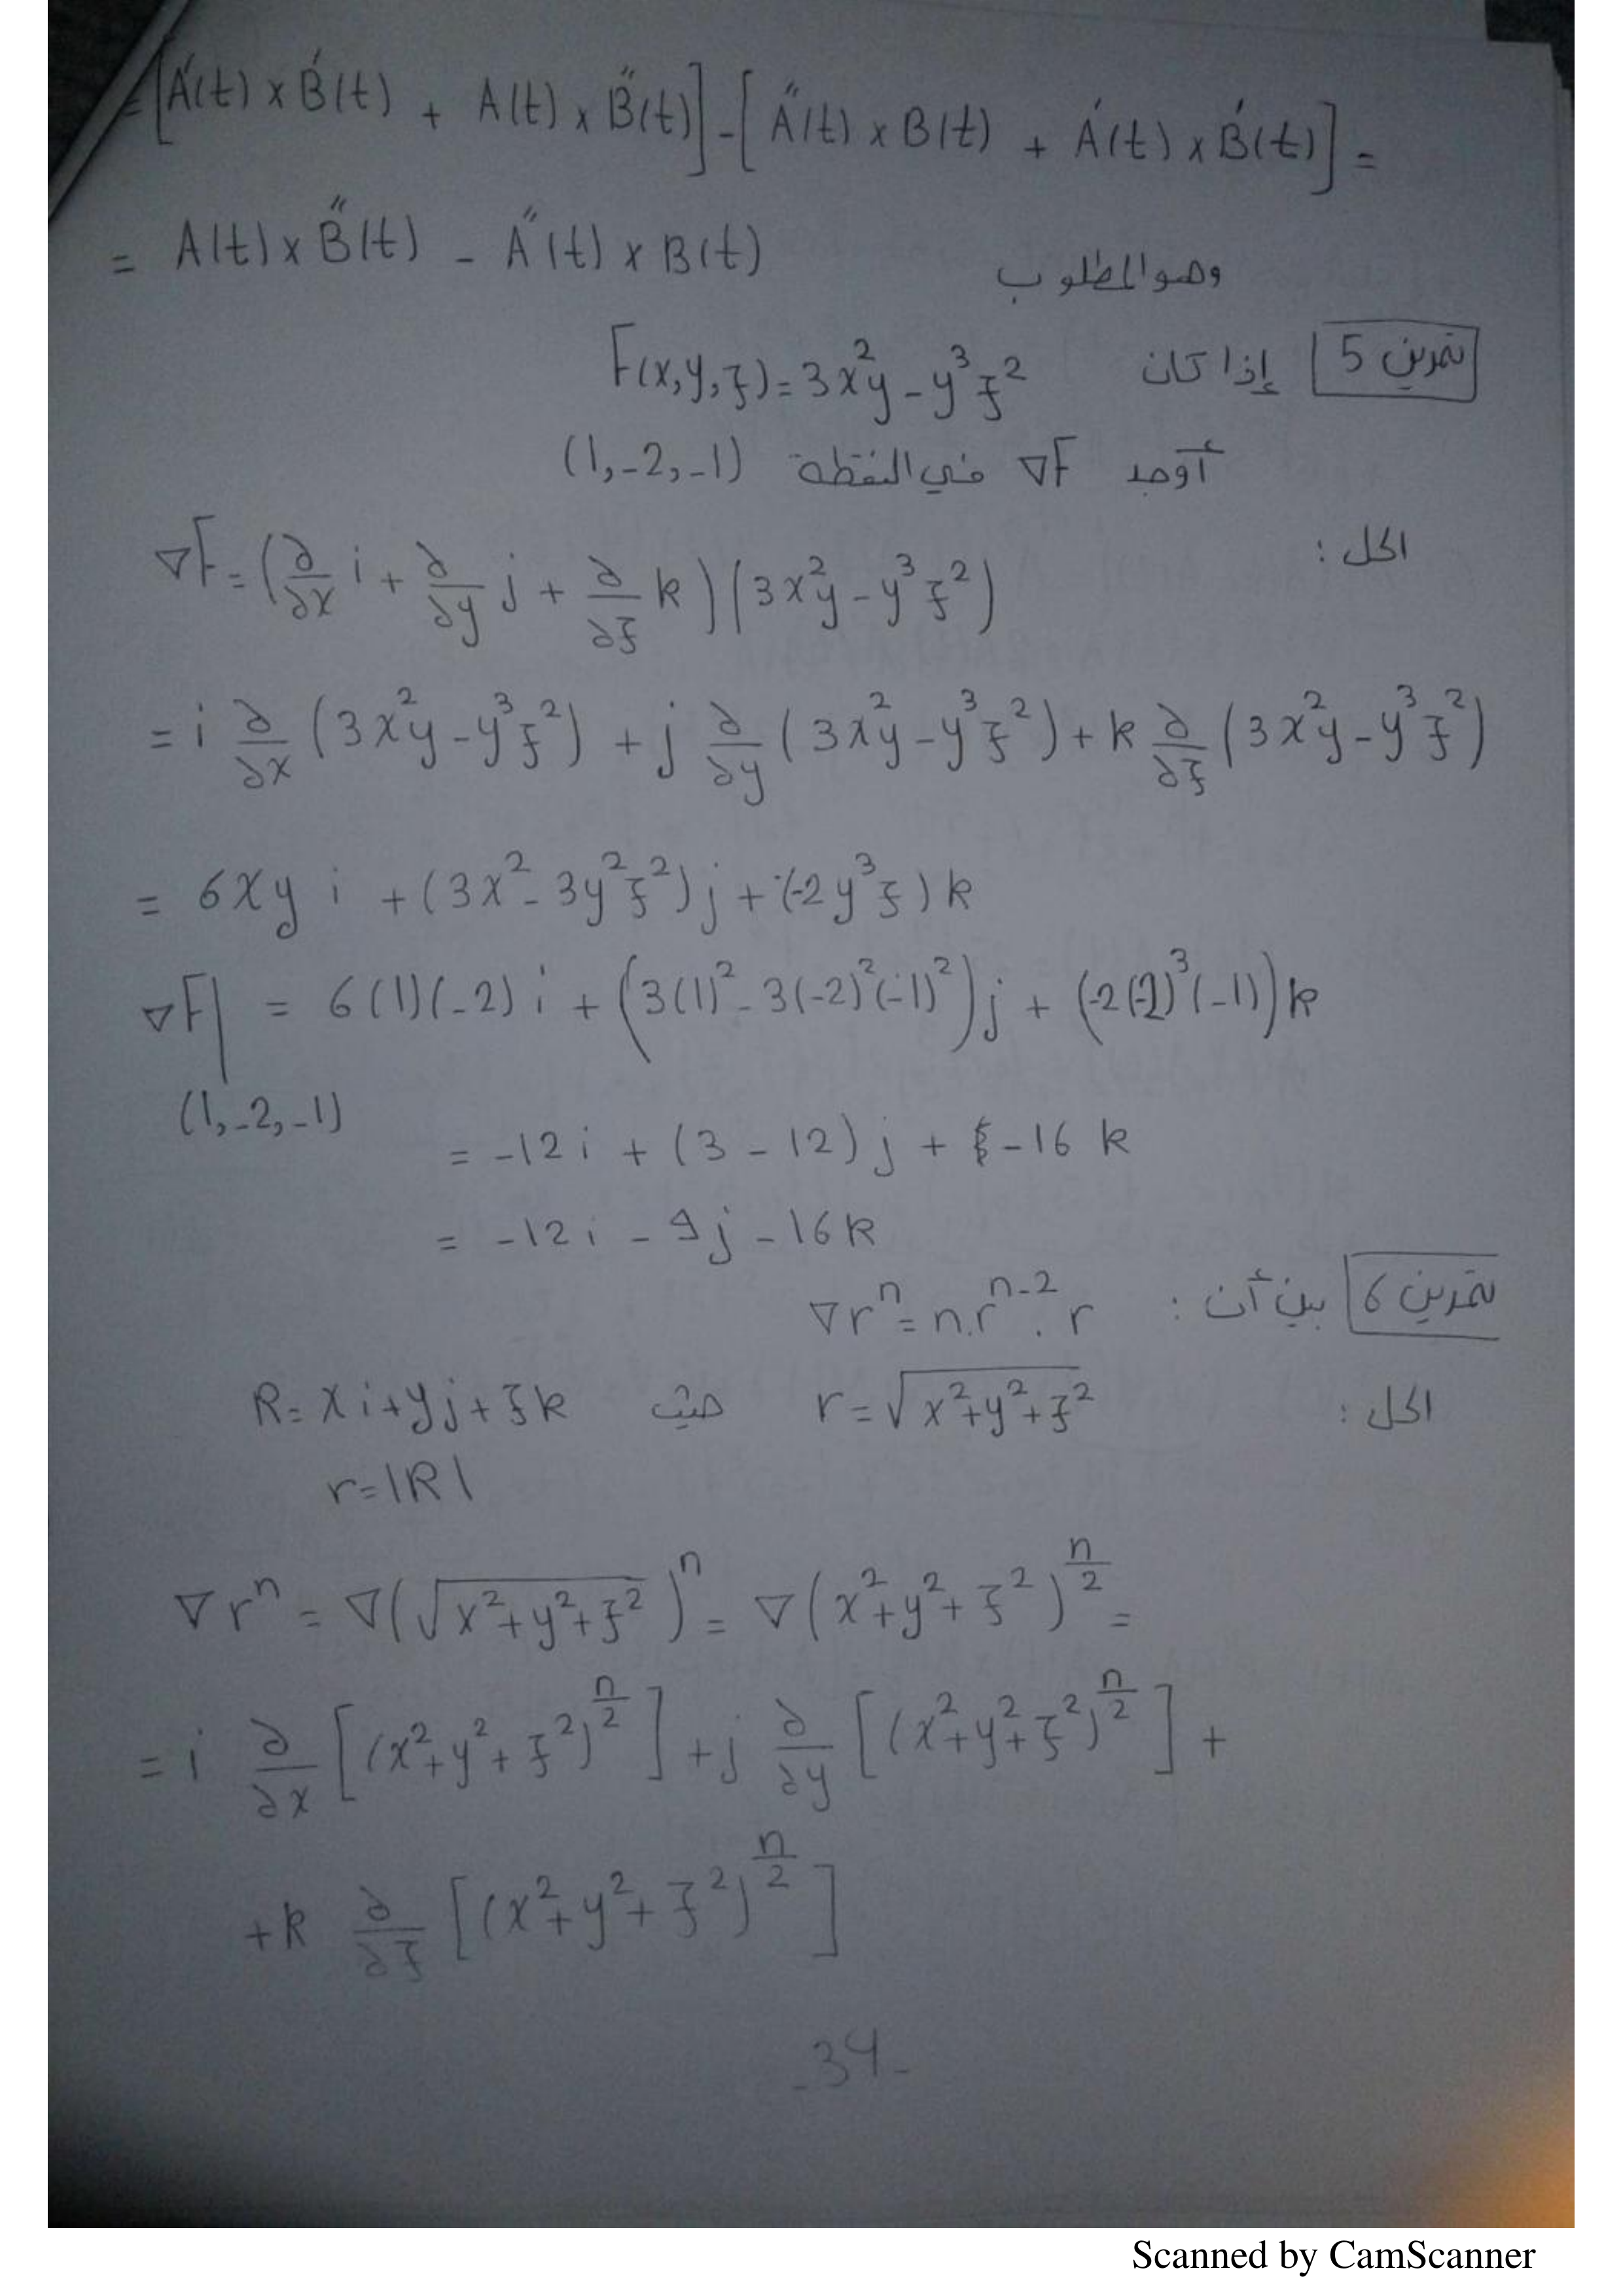 = [A′(t) × B′(t) + A(t) × B″(t)] - [A″(t) × B(t) + A′(t) × B′(t)] =
= A(t) × B″(t) - A″(t) × B(t) وهو المطلوب
تمرين 5 إذا كان F(x,y,z) = 3x²y - y³z²
أوجد ∇F في النقطة (1,-2,-1)
الحل :
∇F = (∂/∂x i + ∂/∂y j + ∂/∂z k)(3x²y - y³z²)
= i ∂/∂x (3x²y - y³z²) + j ∂/∂y (3x²y - y³z²) + k ∂/∂z (3x²y - y³z²)
= 6xy i + (3x² - 3y²z²) j + (-2y³z) k
∇F| = 6(1)(-2) i + (3(1)² - 3(-2)²(-1)²) j + (-2(-2)³(-1)) k
(1,-2,-1)
= -12 i + (3 - 12) j + -16 k
= -12 i - 9 j - 16 k
تمرين 6 بين أن : ∇rⁿ = n.rⁿ⁻² . r
الحل : r = √(x²+y²+z²) حيث R = x i + y j + z k
r = |R|
∇rⁿ = ∇(√(x²+y²+z²))ⁿ = ∇(x²+y²+z²)^(n/2) =
= i ∂/∂x [(x²+y²+z²)^(n/2)] + j ∂/∂y [(x²+y²+z²)^(n/2)] +
+ k ∂/∂z [(x²+y²+z²)^(n/2)]
-34-
Scanned by CamScanner